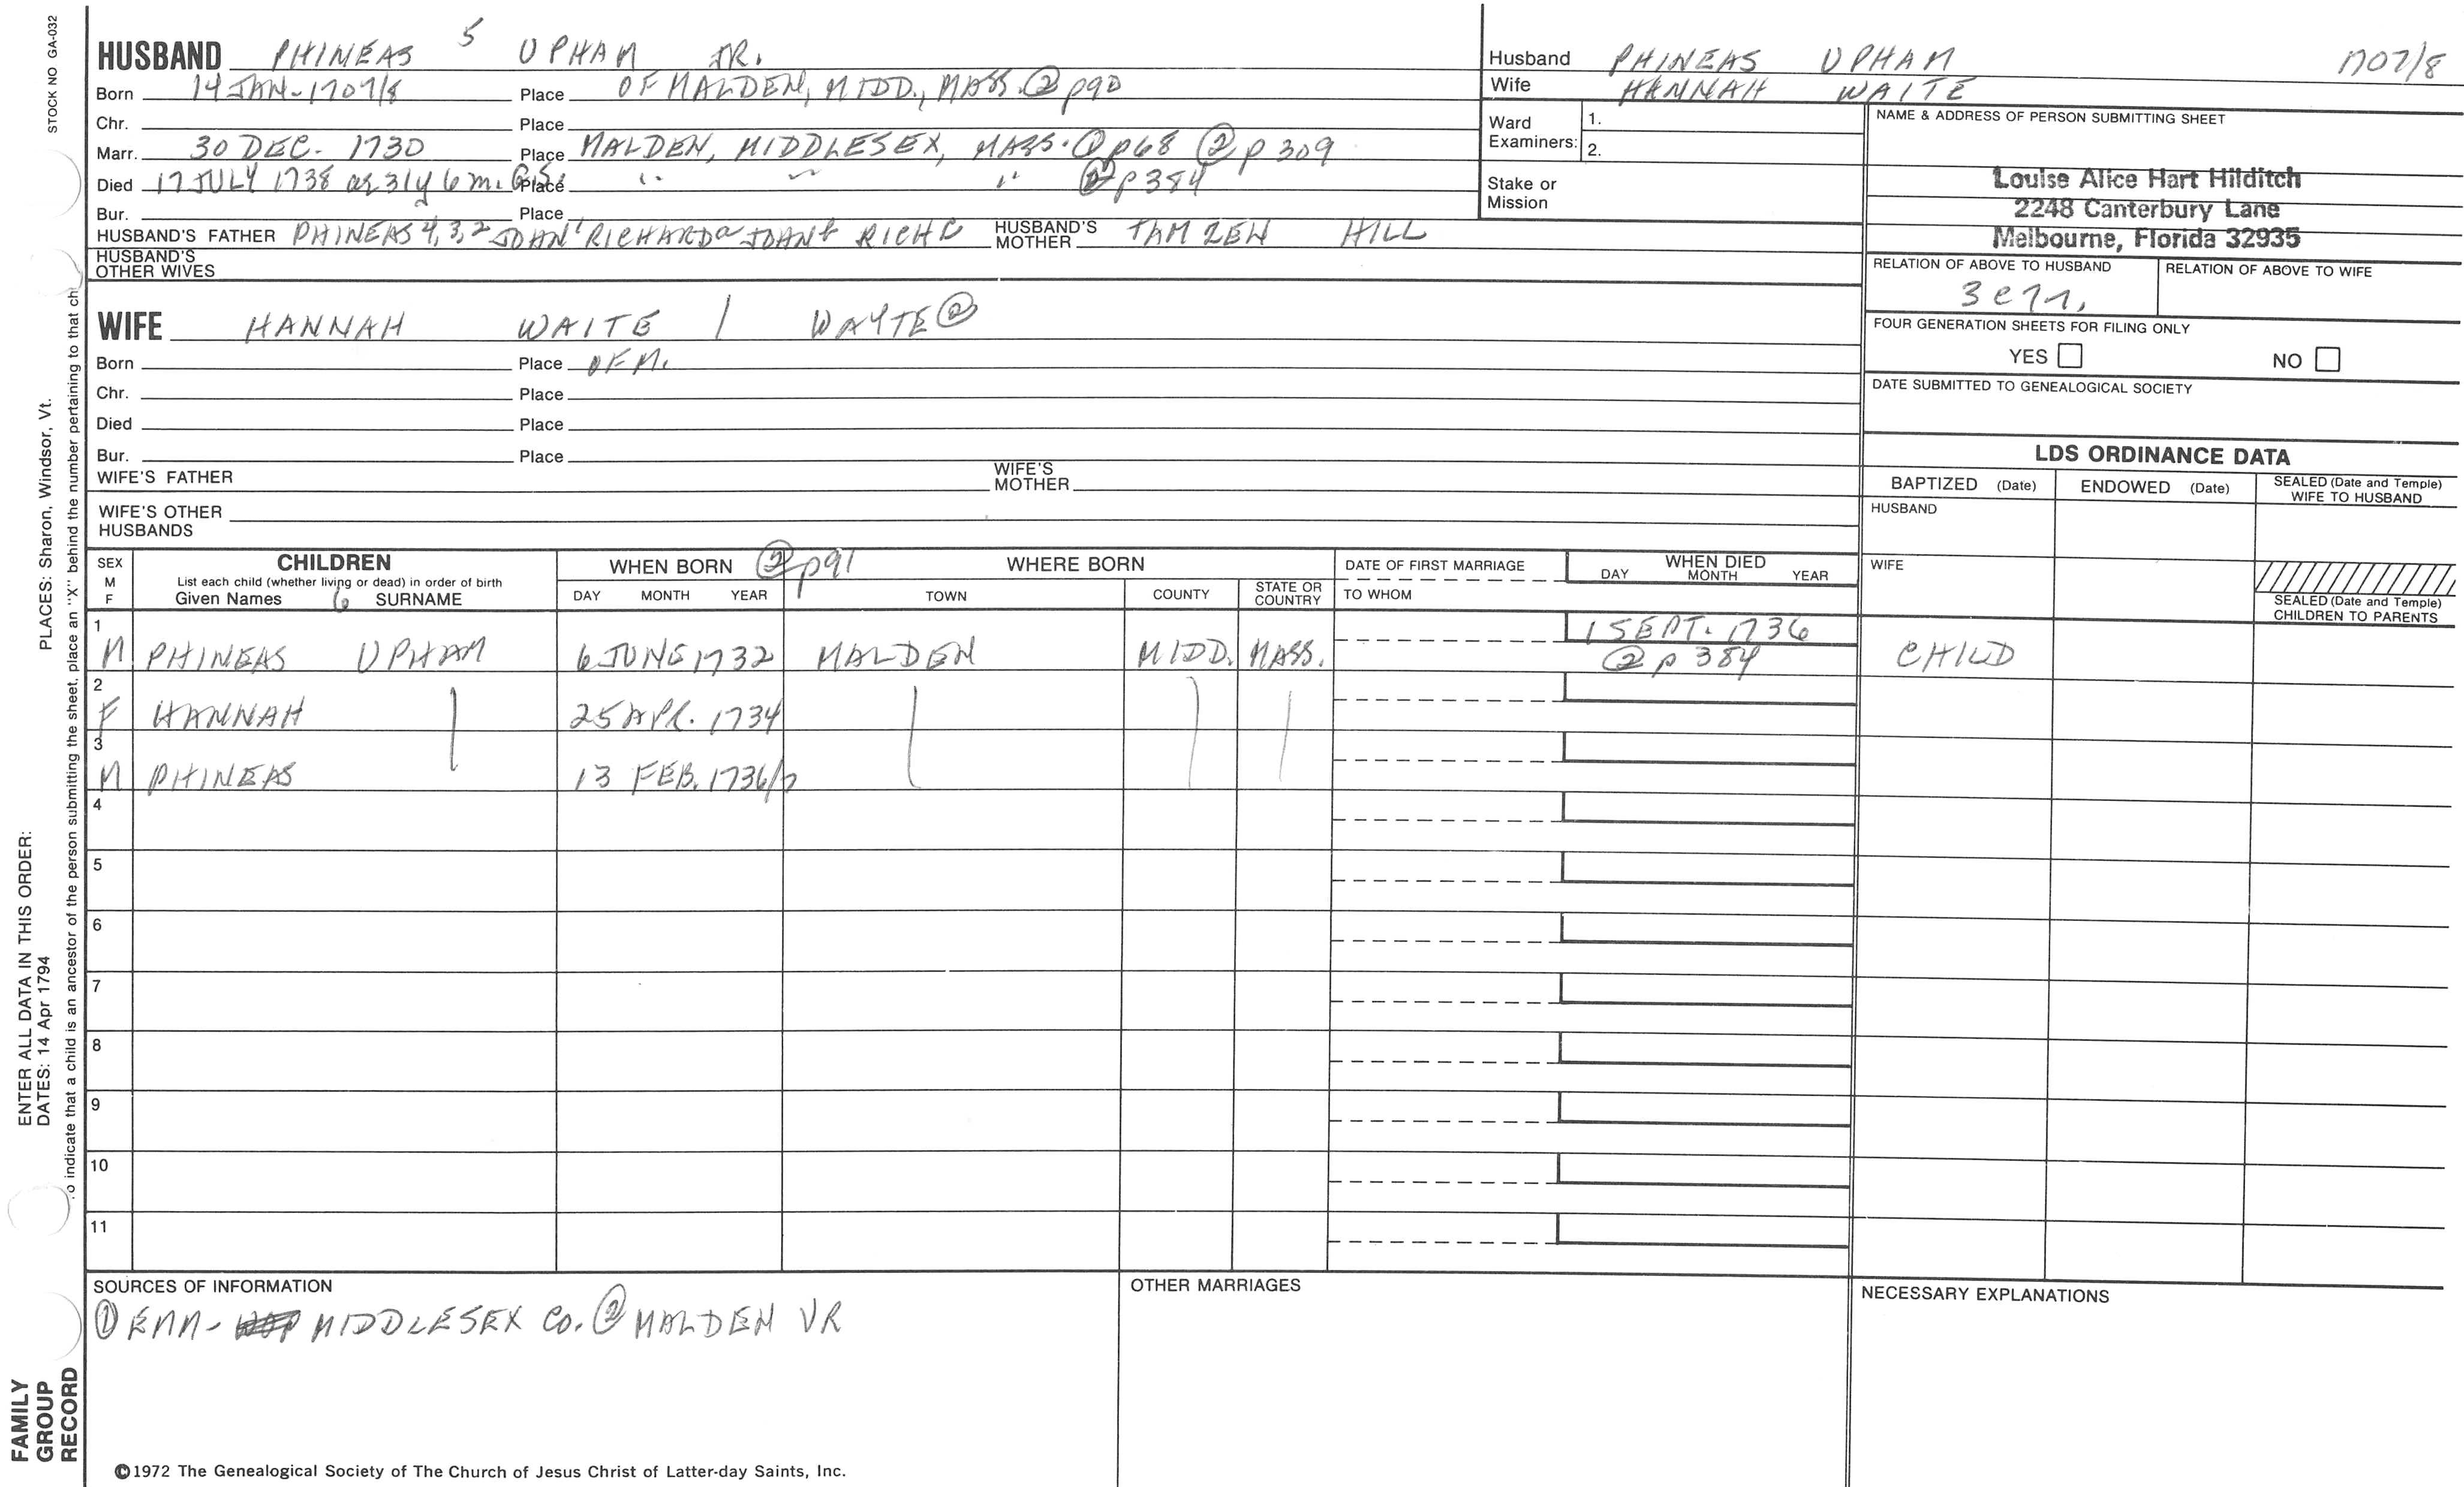 STOCK NO GA-032
HUSBAND PHINEAS 5 UPHAM JR.
Born 14 JAN-1707/8 Place OF MALDEN, MIDD., MASS. ② p90
Chr. Place
Marr. 30 DEC. 1730 Place MALDEN, MIDDLESEX, MASS. ① p68 ② p309
Died 17 JULY 1738 ag 31y 6m. G.S. Place " " " ② p384
Bur. Place
HUSBAND'S FATHER PHINEAS 4,3,2 JOHN 1 RICHARD a JOHN b RICH c HUSBAND'S MOTHER TAMZEN HILL
HUSBAND'S OTHER WIVES
Husband PHINEAS UPHAM 1707/8
Wife HANNAH WAITE
Ward Examiners: 1.
2.
Stake or Mission
NAME & ADDRESS OF PERSON SUBMITTING SHEET
Louise Alice Hart Hilditch
2248 Canterbury Lane
Melbourne, Florida 32935
RELATION OF ABOVE TO HUSBAND RELATION OF ABOVE TO WIFE
FOUR GENERATION SHEETS FOR FILING ONLY
YES NO
DATE SUBMITTED TO GENEALOGICAL SOCIETY
WIFE HANNAH WAITE / WAYTE ②
Born Place OF M.
Chr. Place
Died Place
Bur. Place
WIFE'S FATHER WIFE'S MOTHER
WIFE'S OTHER HUSBANDS
LDS ORDINANCE DATA
BAPTIZED (Date) ENDOWED (Date) SEALED (Date and Temple) WIFE TO HUSBAND
HUSBAND
WIFE
SEALED (Date and Temple) CHILDREN TO PARENTS
SEX M F CHILDREN WHEN BORN ② p91 WHERE BORN DATE OF FIRST MARRIAGE WHEN DIED
List each child (whether living or dead) in order of birth
Given Names 6 SURNAME DAY MONTH YEAR TOWN COUNTY STATE OR COUNTRY TO WHOM DAY MONTH YEAR
1 M PHINEAS UPHAM 6 JUNE 1732 MALDEN MIDD. MASS. 1 SEPT. 1736 ② p 384 CHILD
2 F HANNAH 25 APR. 1734
3 M PHINEAS 13 FEB. 1736/7
4
5
6
7
8
9
10
11
SOURCES OF INFORMATION
① EMM- MIDDLESEX CO. ② MALDEN VR
OTHER MARRIAGES
NECESSARY EXPLANATIONS
©1972 The Genealogical Society of The Church of Jesus Christ of Latter-day Saints, Inc.
FAMILY GROUP RECORD
ENTER ALL DATA IN THIS ORDER:
DATES: 14 Apr 1794
PLACES: Sharon, Windsor, Vt.
indicate that a child is an ancestor of the person submitting the sheet, place an "X" behind the number pertaining to that ch